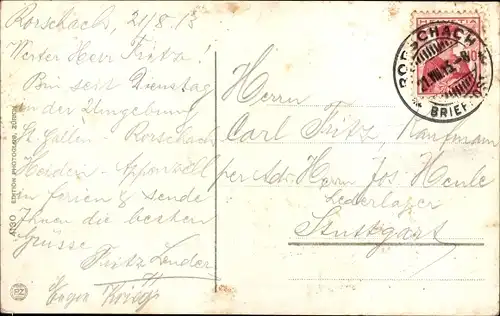 Rorschach, 21/8.13
Werter Herr Fritz!
Bin seit Dienstag
in der Umgebung
St. Gallen - Rorschach
Heiden - Appenzell
in Ferien & sende
Ihnen die besten
Grüsse
Fritz
Eugen
Herrn
Carl Fritz, Kaufmann
per Adr. Herrn Jos. Henle
Lederlager
Stuttgart
RORSCHACH
21.VIII.13.
BRIEF
HELVETIA
4190 EDITION PHOTOGLOB, ZÜRICH
PZ